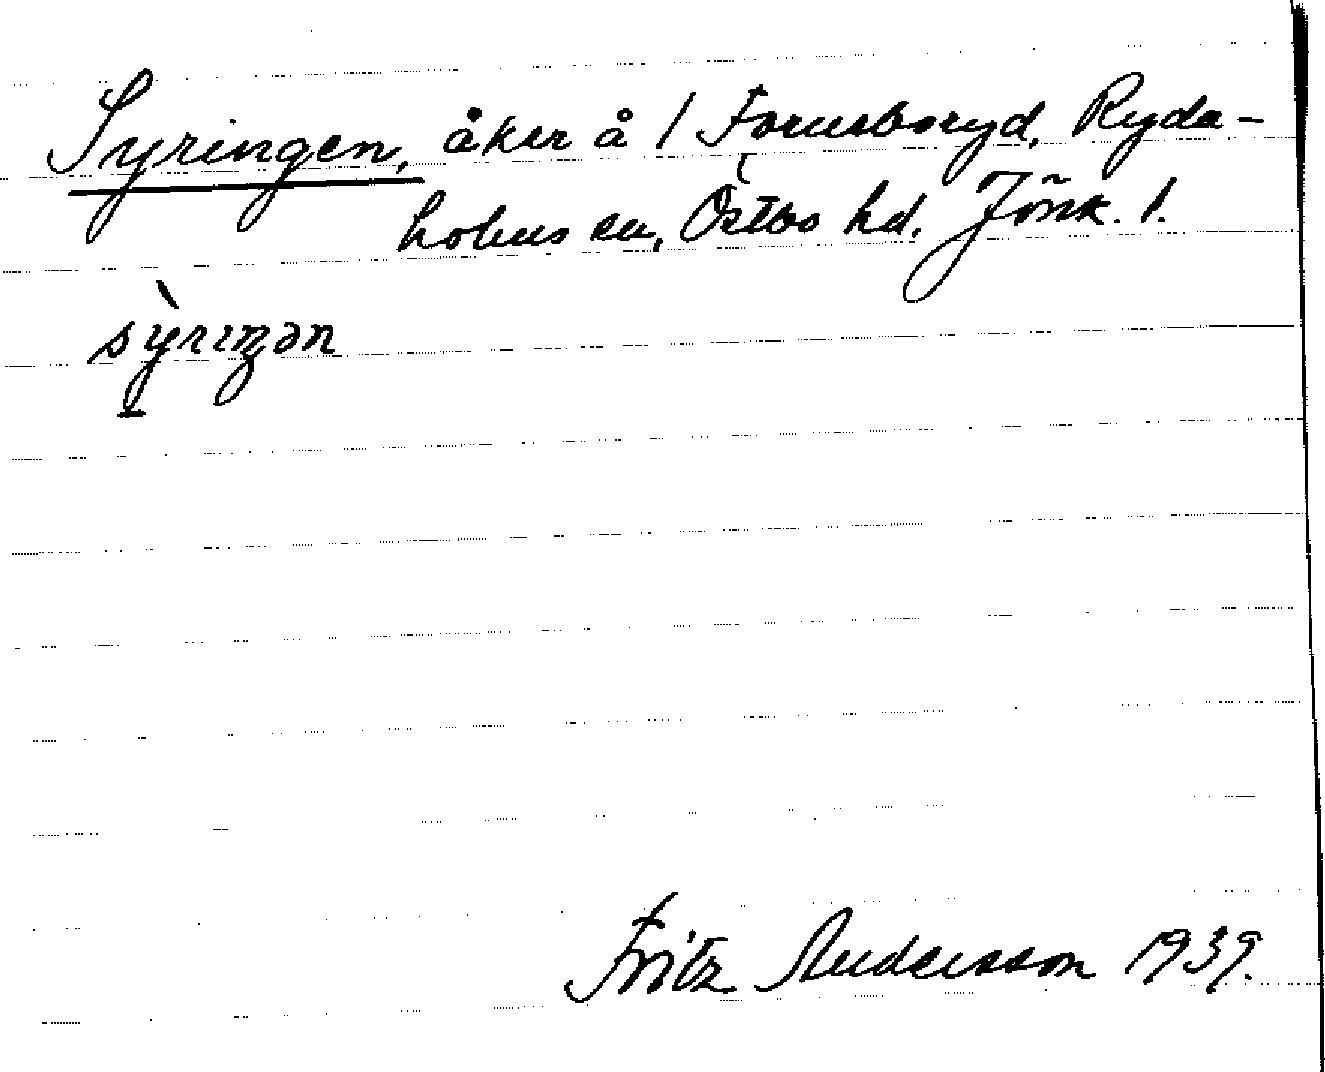 Syringen, åker å 1 Forusboryd, Ryda-
holms sn, Östbo hd. Jönk. l.
sỳriŋən
Fritz Andersson 1939.